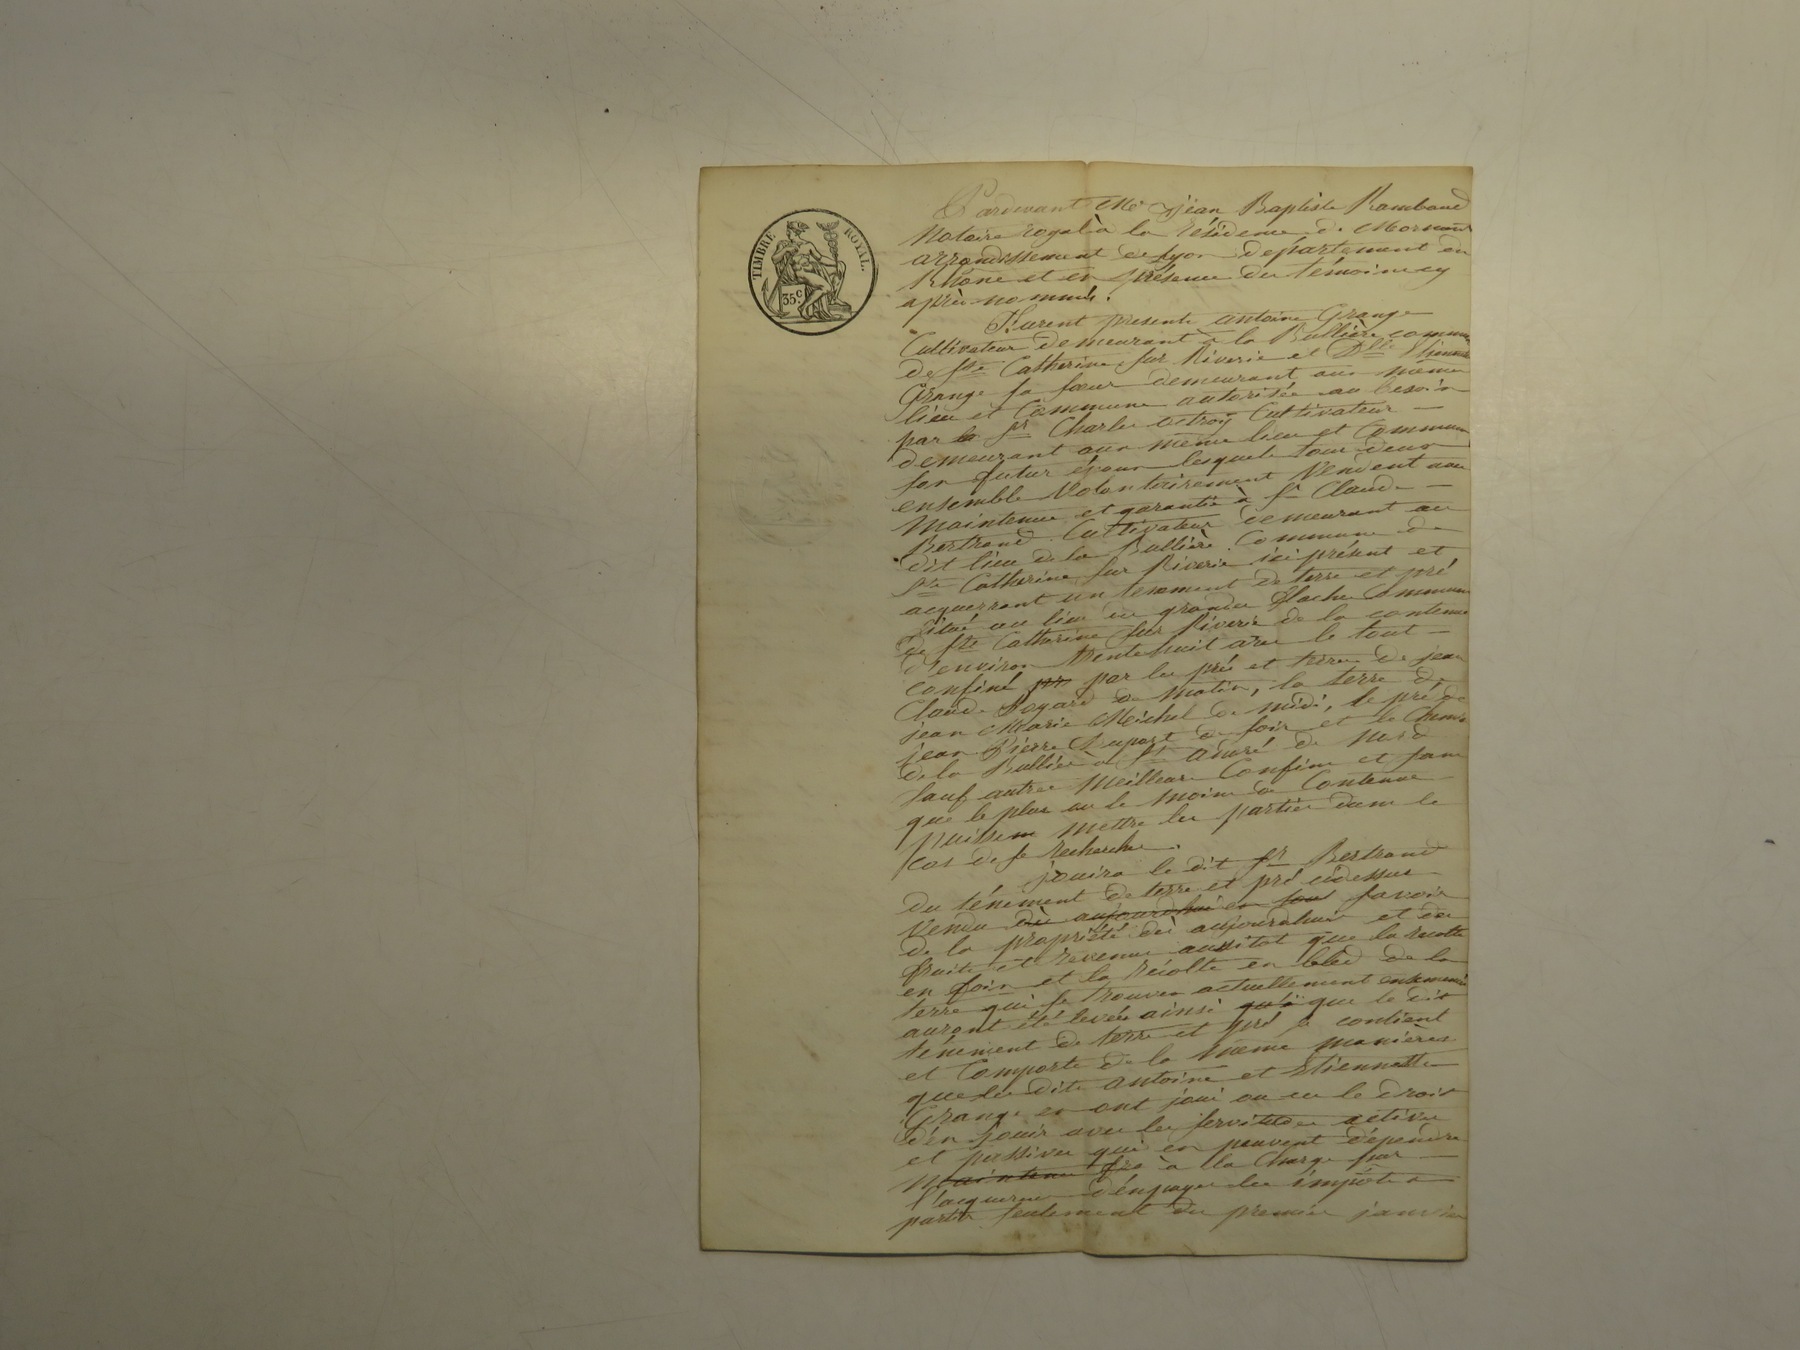 TIMBRE ROYAL.
35c.
Pardevant Me Jean Baptiste Rambaud
Notaire royal à la résidence de Mornant
arrondissement de Lyon département du
Rhône et en présence des témoins cy
après nommés.
Furent présents antoine Grange
Cultivateur demeurant à la Bullière commune
de Ste Catherine sur Riverie et Dlle Etiennette
Grange sa sœur demeurant aux meme
lieu et Commune autorisée au besoin
par le sr Charle Cultivateur
demeurant aux même lieu et Commune
son futur époux lesquels tous deux
ensemble Volontairement Vendent avec
Maintenue et garantie à sr Claude
Bertrand Cultivateur demeurant au
dit lieu de la Bullière Commune de
Ste Catherine sur Riverie ici présent et
acquerrant un tenement de terre et pré
situé au lieu des grandes flaches Commune
de Ste Catherine sur Riverie de la contenue
d'environ trente huit ares le tout
confiné par les prés et terres de jean
Claude de matin, la terre de
jean Marie Michel de midi, le pré de
jean Pierre Dupont de soir et le Chemin
de la Bullière à St André de Nord
sauf autres Meilleurs Confins et sans
que le plus ou le moins de Contenue
puissent mettre les parties dans le
cas de se rechercher.
jouira le dit sr Bertrand
du ténement de terre et pré cidessus
Vendu dès aujourdhui en tout savoir
de la propriété dès aujourdhui et des
fruits et revenus aussitot que la recolte
en foin et la récolte en bled de la
terre qui se trouve actuellement ensemencée
auront été levées ainsi qu'à que le dit
ténement de terre et pré se contient
et Comporte de la même manières
que les dits Antoine et Etiennette
Grange en ont joui ou eu le droit
d'en jouir avec les servitudes actives
et passives qui en peuvent dépendre
à la Charge par
l'acquereur d'en payer les impôts à
partir seulement du premier janvier